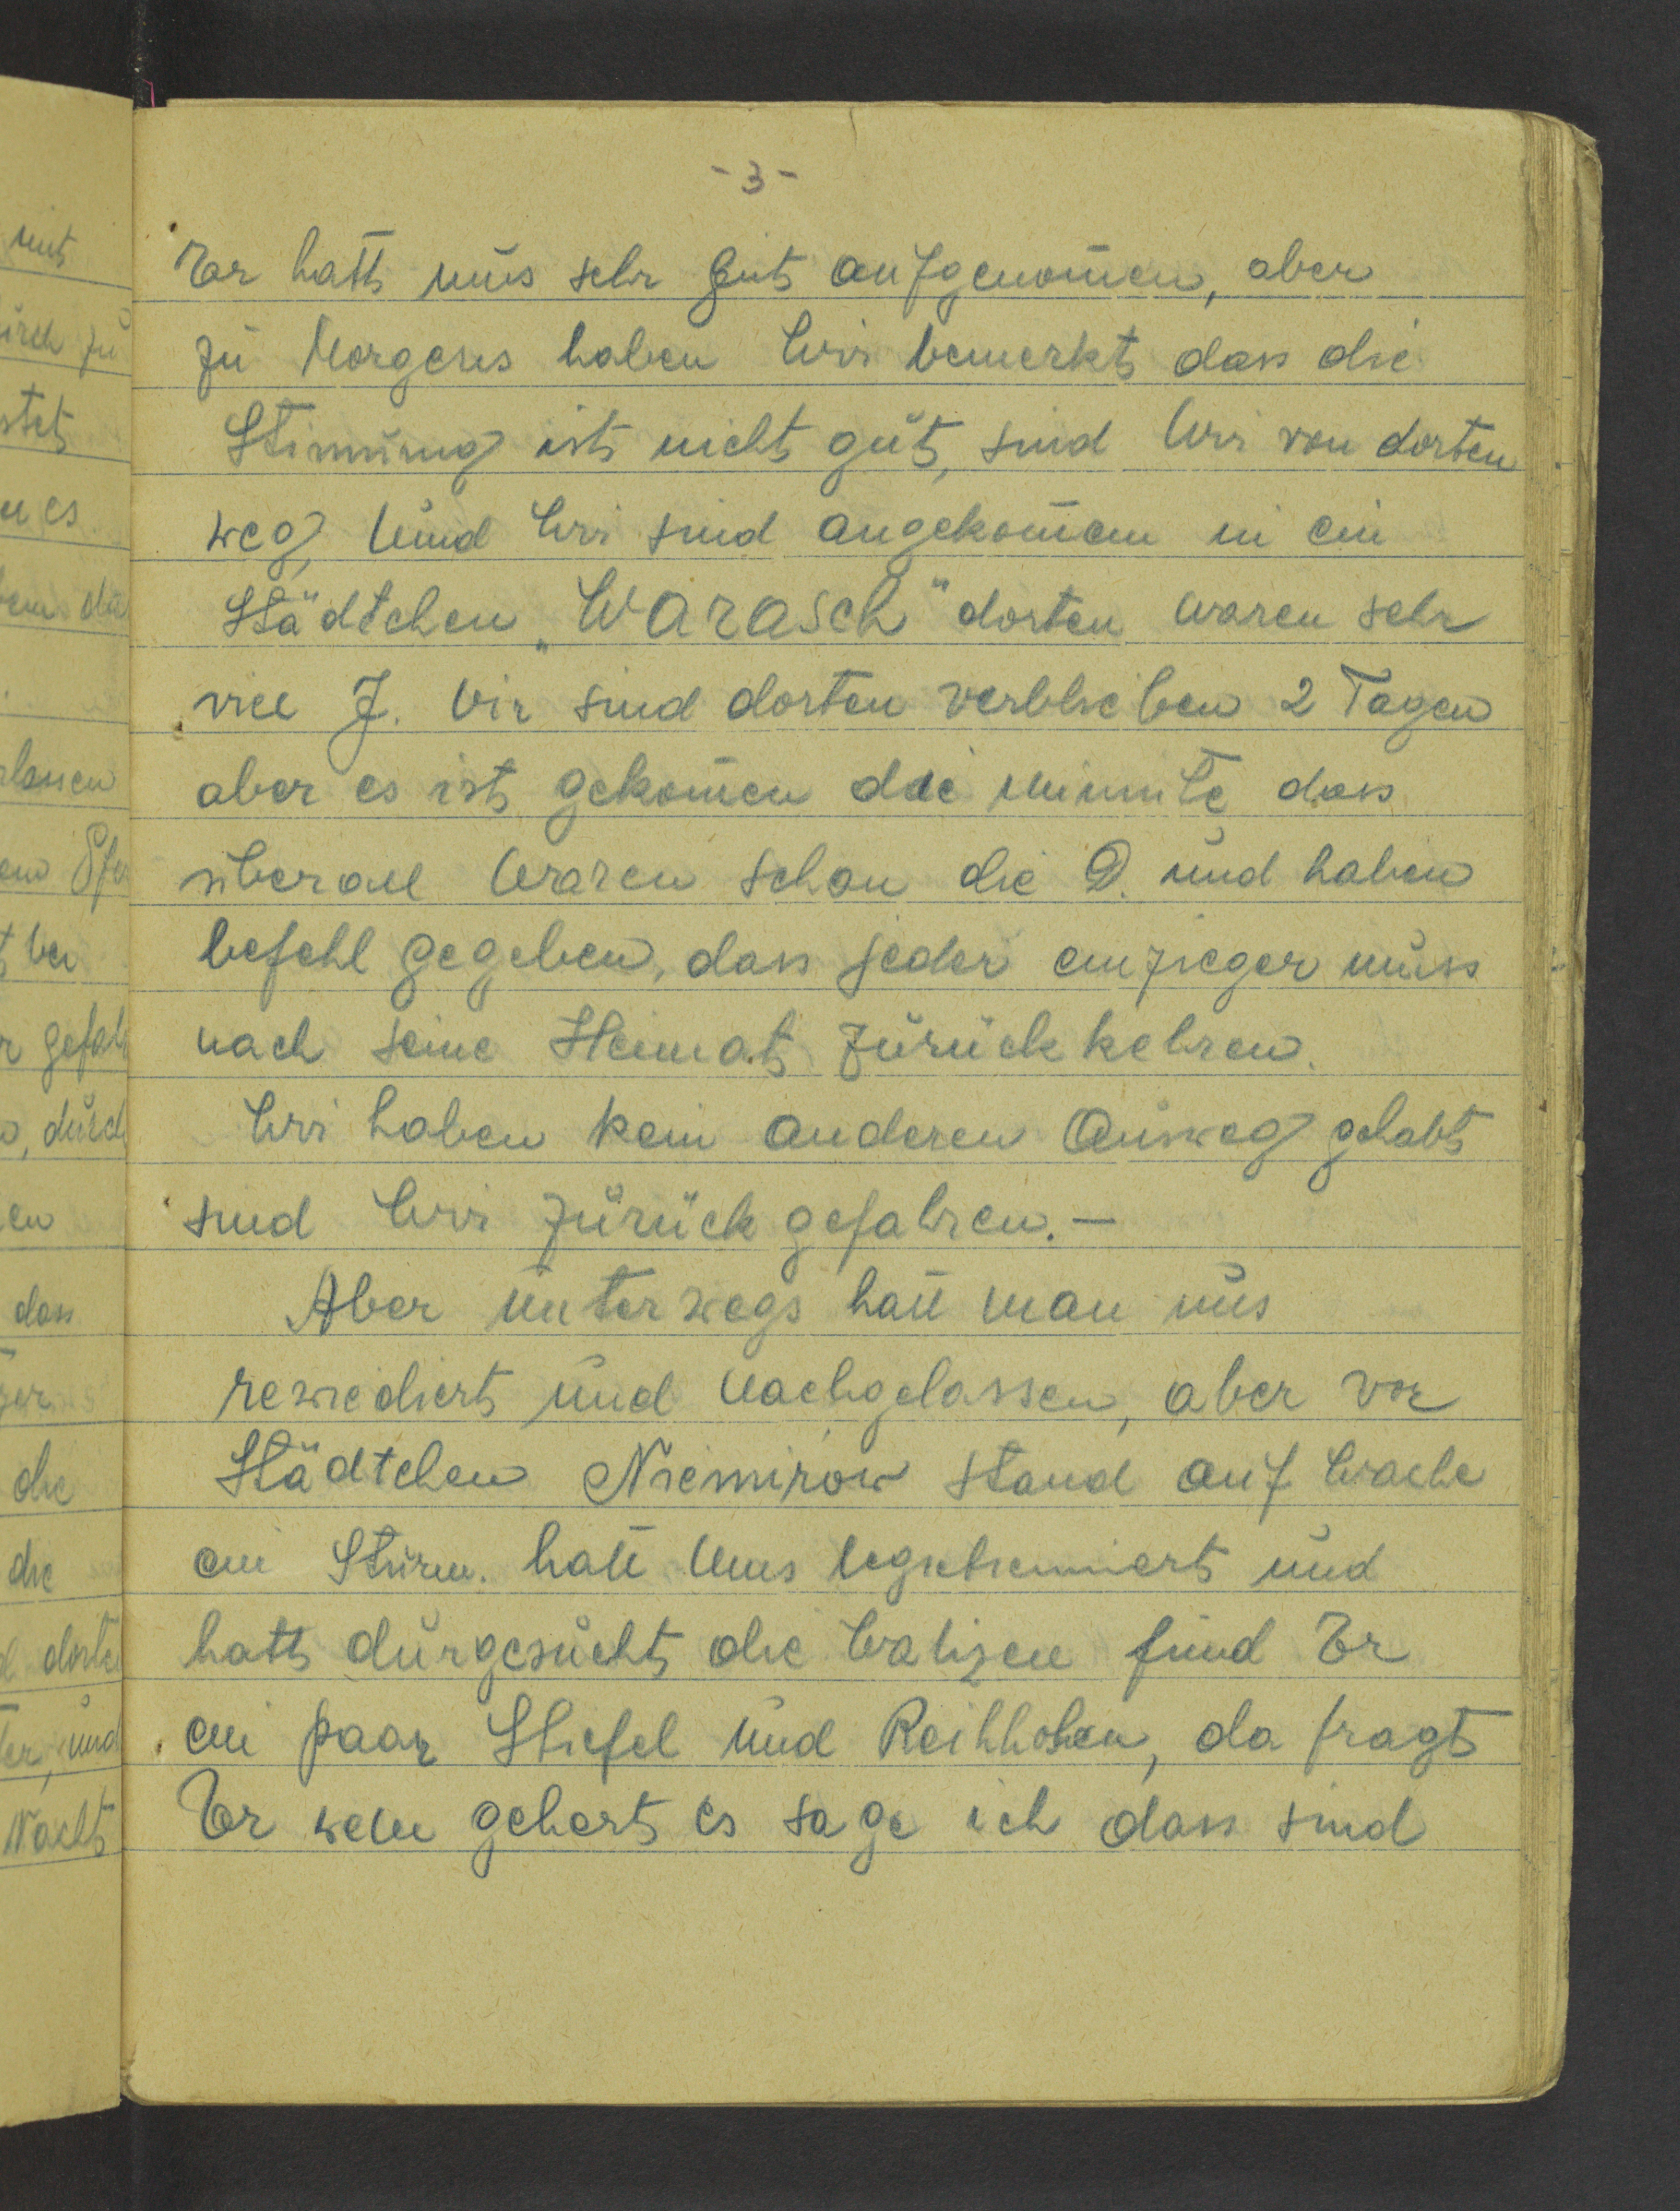 - 3 -
Er hatt uns sehr gut aufgenom̄en, aber
zu Morgens haben Wir bemerkt dass die
Stimmung ist nicht gut, sind Wir von dorten
weg, Und Wir sind angekom̄en in ein
Städtchen „Warasch" dorten waren sehr
viel J. Wir sind dorten verblieben 2 Tagen
aber es ist gekom̄en die Minute dass
überall Waren schon die D. und haben
befehl gegeben, dass jeder einzieger muss
nach seine Heimat zurückkehren.
Wir haben kein anderen Ausweg gehabt
sind Wir zurück gefahren. —
Aber unterwegs hatt man uns
rewiediert und nachgelassen, aber vor
Städtchen Niemirow stand auf Wache
ein Sturm. hatt Uns legietiemiert und
hatt durgesucht die Walizen fund Er
ein paar Stiefel und Reithosen, da fragt
Er wem gehert es sage ich dass sind
mit
durch zu
es
die
lassen
bei
durch
en
dass
die
die
und
Nacht